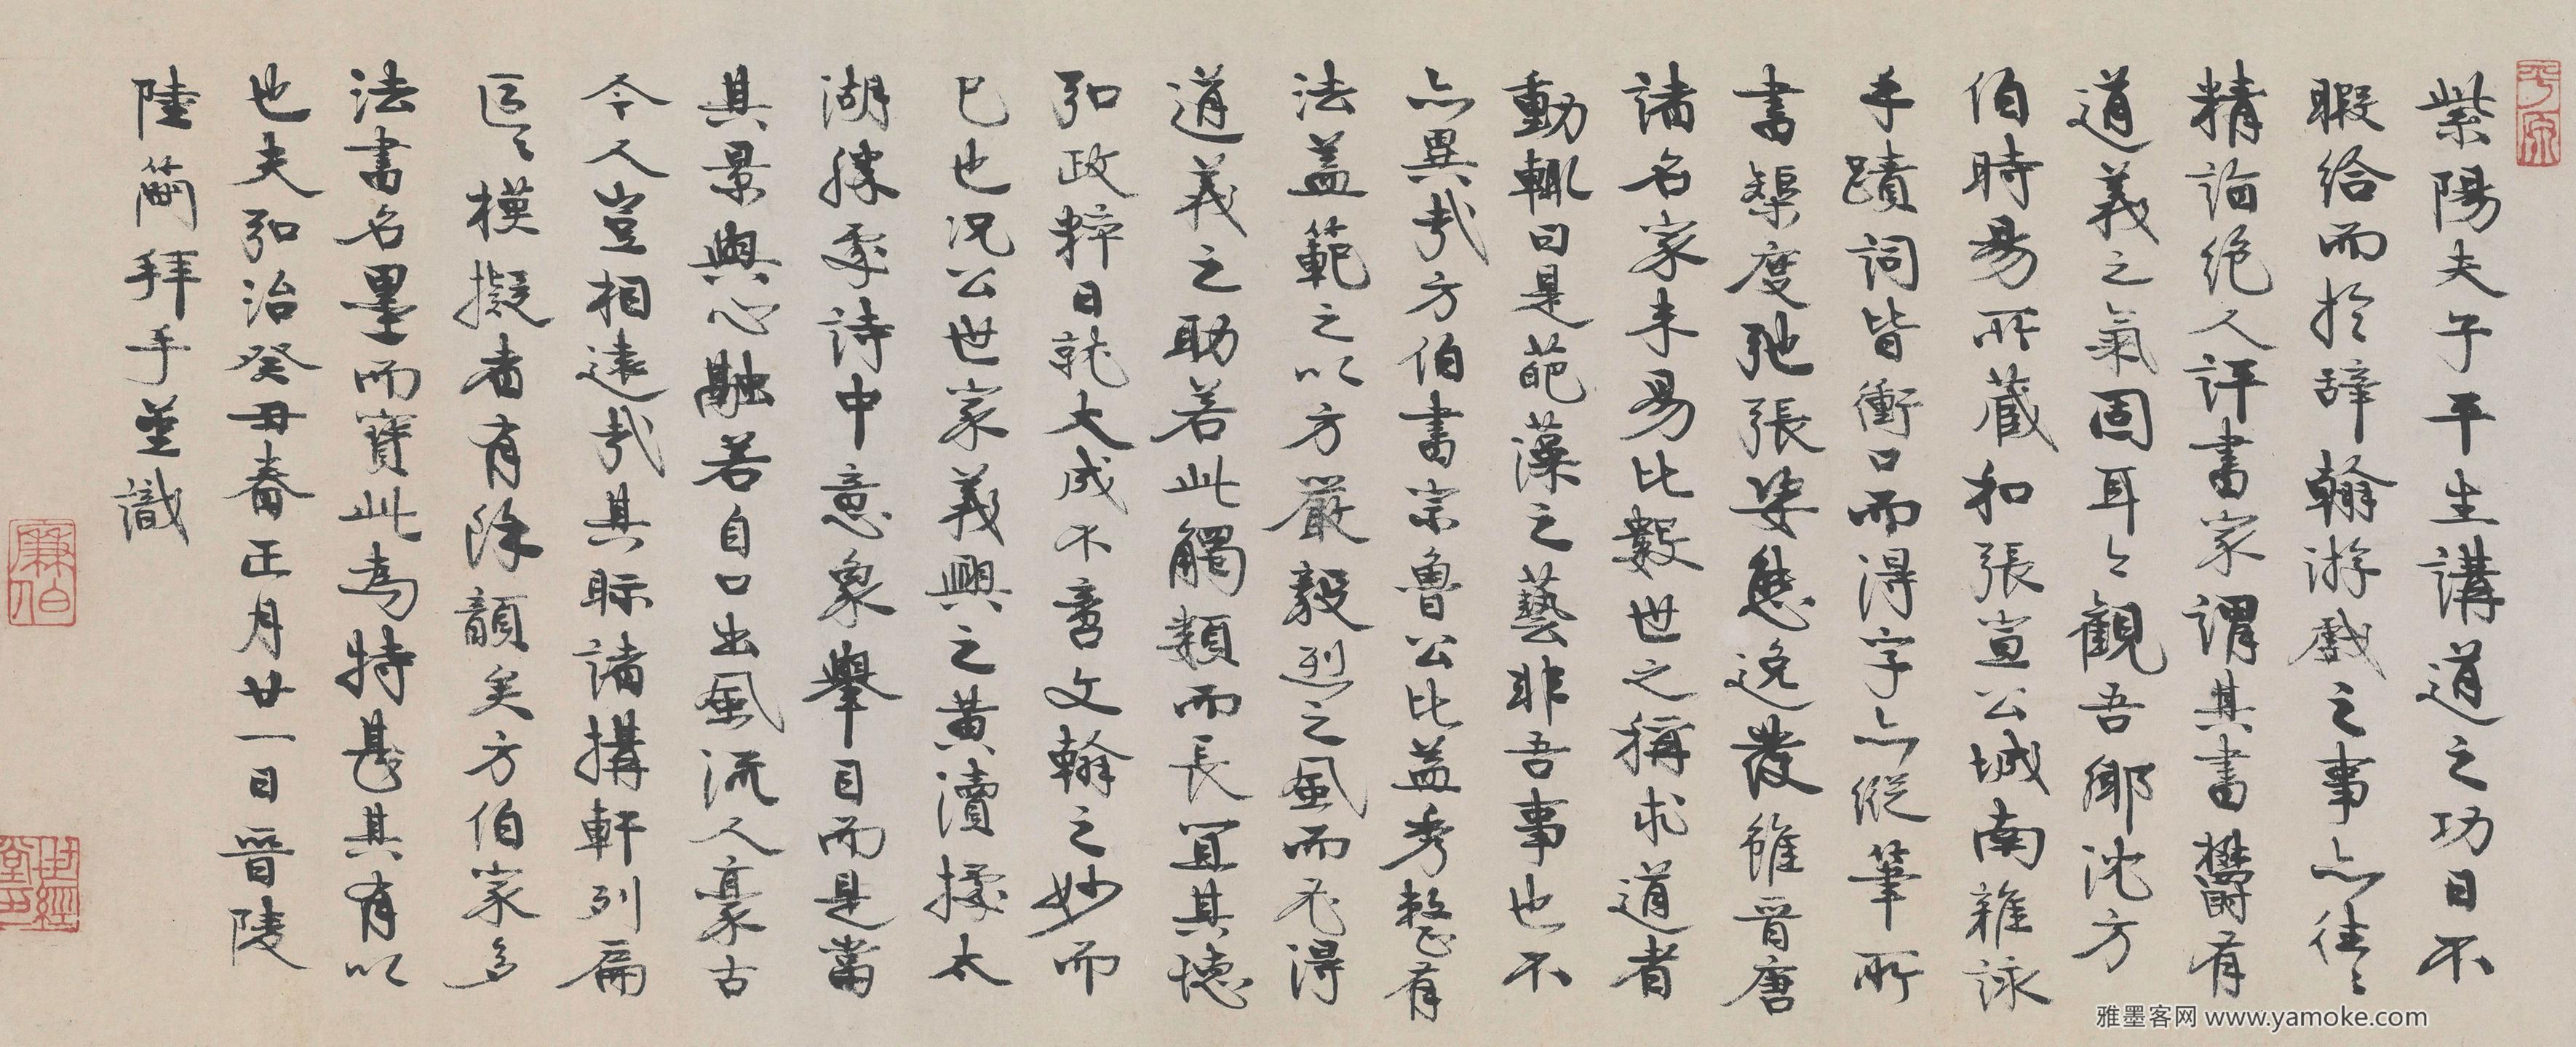 平原
紫陽夫子平生講道之功日不
暇給而於辭翰游戲之事亦往〻
精詣絕人評書家謂其書鬱有
道義之氣固耳〻觀吾鄉沈方
伯時暘所藏和張宣公城南雜詠
手蹟詞皆衝口而得字亦縱筆所
書榘度弛張姿態逸發雖晉唐
諸名家未易比數世之稱求道者
動輒曰是葩藻之藝非吾事也不
亦異哉方伯書宗魯公比益秀整有
法蓋範之以方嚴毅烈之風而兼得
道義之助若此觸類而長宜其德
弘政粹日就大成不啻文翰之妙而
已也況公世家義興之黃瀆據太
湖勝處詩中意象舉目而是當
其景與心融若自口出風流人豪古
今人豈相遠哉其眎諸搆軒列扁
區〻模擬者有除顏矣方伯家多
法書名墨而寶此為特甚其有以
也夫弘治癸丑春正月廿一日晉陵
陸簡拜手莖識
廉伯
世經堂印
雅墨客网 www.yamoke.com